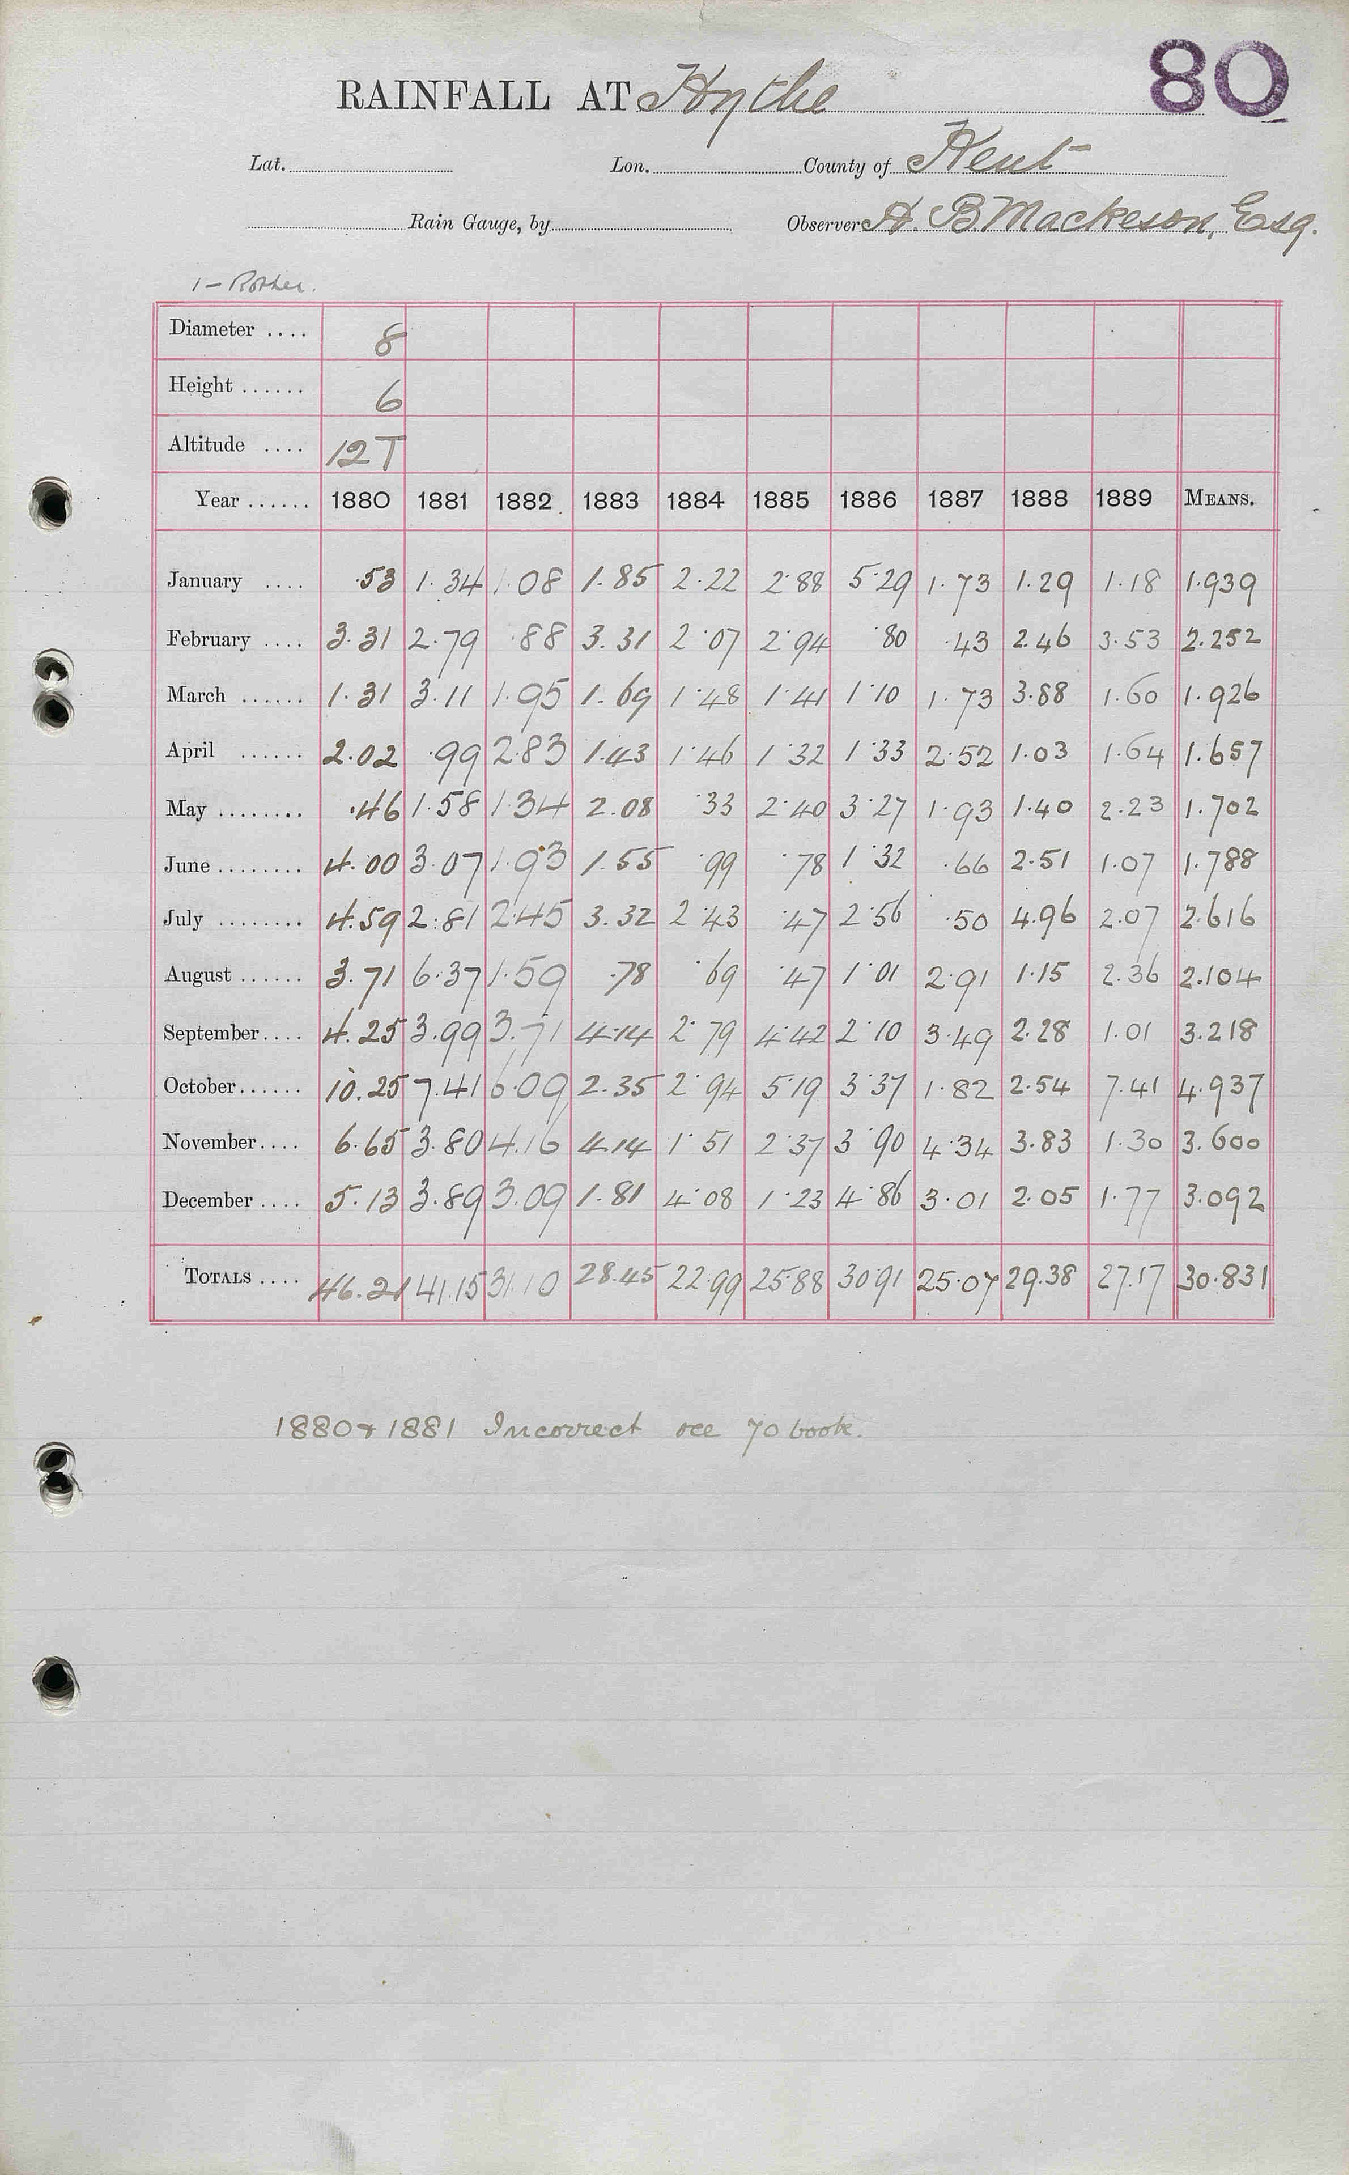 80
RAINFALL AT Hythe
Lat. Lon. County of Kent
Rain Gauge, by Observer H. B Mackeson, Esq.
1 - Rother.
Diameter .... 8
Height ...... 6
Altitude .... 12T
Year ...... 1880 1881 1882 1883 1884 1885 1886 1887 1888 1889 MEANS.
January .... .53 1.34 1.08 1.85 2.22 2.88 5.29 1.73 1.29 1.18 1.939
February .... 3.31 2.79 .88 3.31 2.07 2.94 .80 .43 2.46 3.53 2.252
March ...... 1.31 3.11 1.95 1.69 1.48 1.41 1.10 1.73 3.88 1.60 1.926
April ...... 2.02 .99 2.83 1.43 1.46 1.32 1.33 2.52 1.03 1.64 1.657
May ........ .46 1.58 1.34 2.08 .33 2.40 3.27 1.93 1.40 2.23 1.702
June ........ 4.00 3.07 1.93 1.55 .99 .78 1.32 .66 2.51 1.07 1.788
July ........ 4.59 2.81 2.45 3.32 2.43 .47 2.56 .50 4.96 2.07 2.616
August ...... 3.71 6.37 1.59 .78 .69 .47 1.01 2.91 1.15 2.36 2.104
September .... 4.25 3.99 3.71 4.14 2.79 4.42 2.10 3.49 2.28 1.01 3.218
October ...... 10.25 7.41 6.09 2.35 2.94 5.19 3.37 1.82 2.54 7.41 4.937
November .... 6.65 3.80 4.16 4.14 1.51 2.37 3.90 4.34 3.83 1.30 3.600
December .... 5.13 3.89 3.09 1.81 4.08 1.23 4.86 3.01 2.05 1.77 3.092
TOTALS .... 46.21 41.15 31.10 28.45 22.99 25.88 30.91 25.07 29.38 27.17 30.831
1880 + 1881 Incorrect see 70 book.